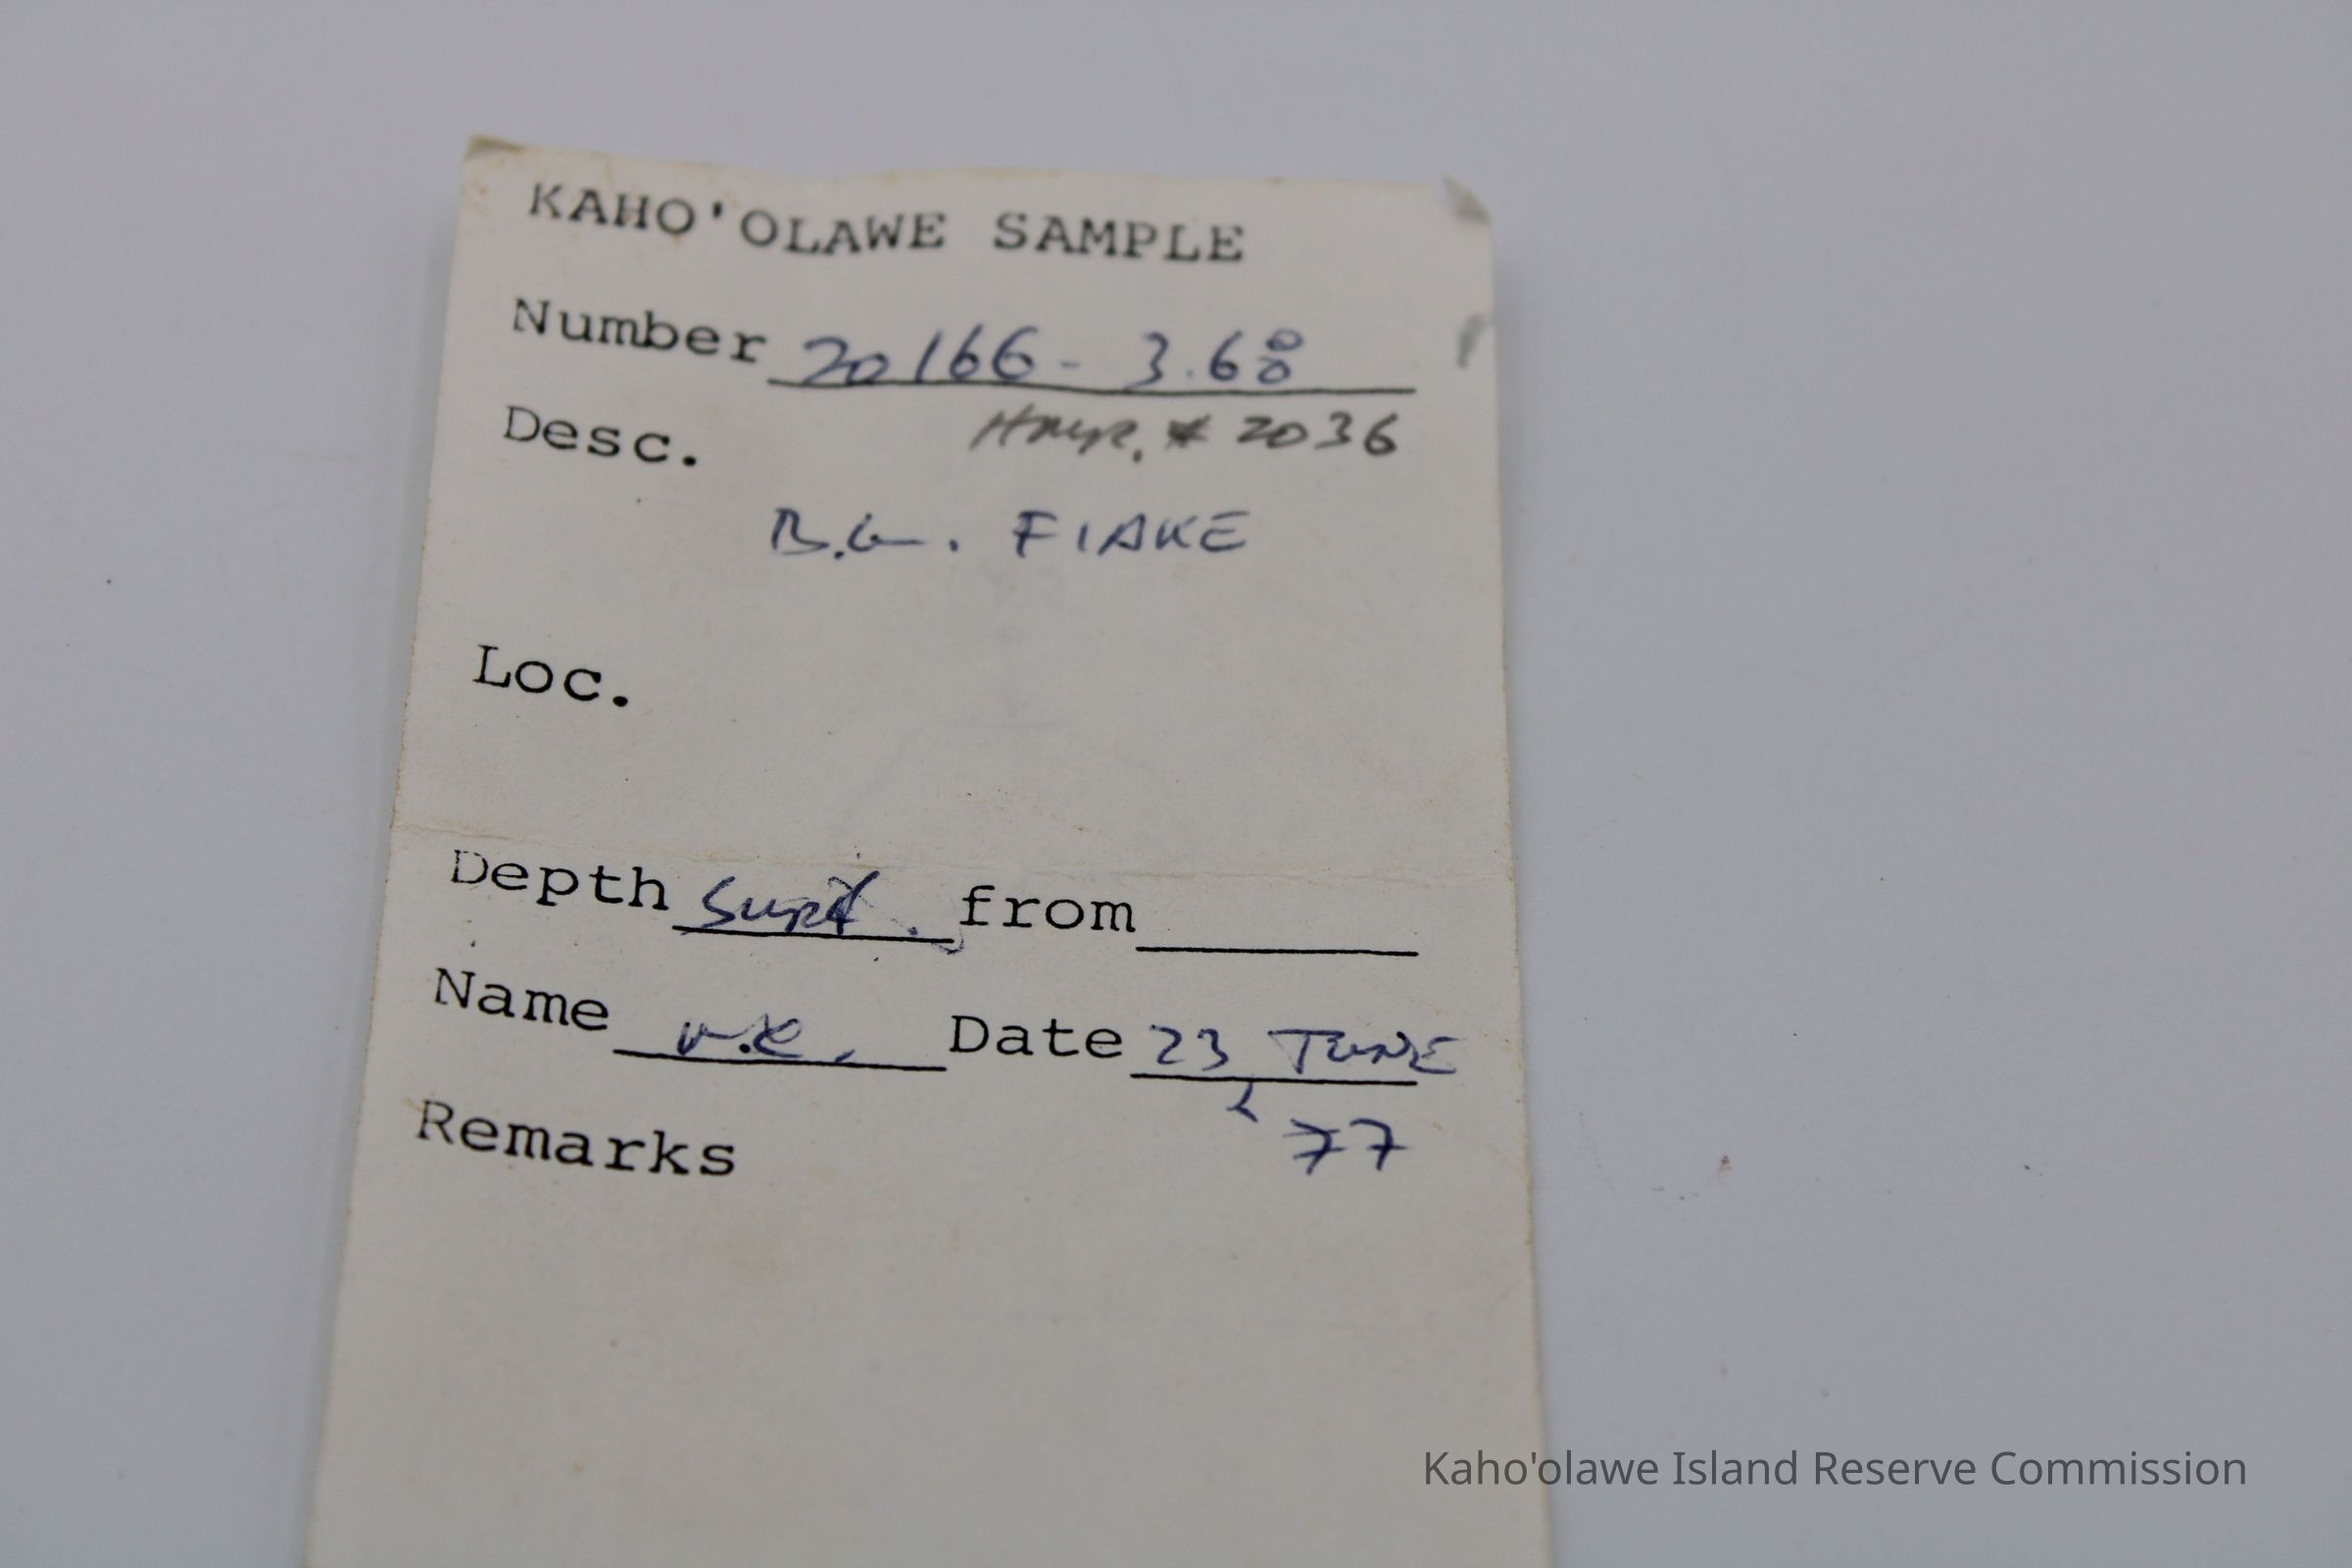 KAHO'OLAWE SAMPLE
Number 20166 - 3.68
Desc. # 2036
B.G. FlAKE
Loc.
Depth Surf. from
Name Date 23 JUNE
Remarks '77
Kaho'olawe Island Reserve Commission